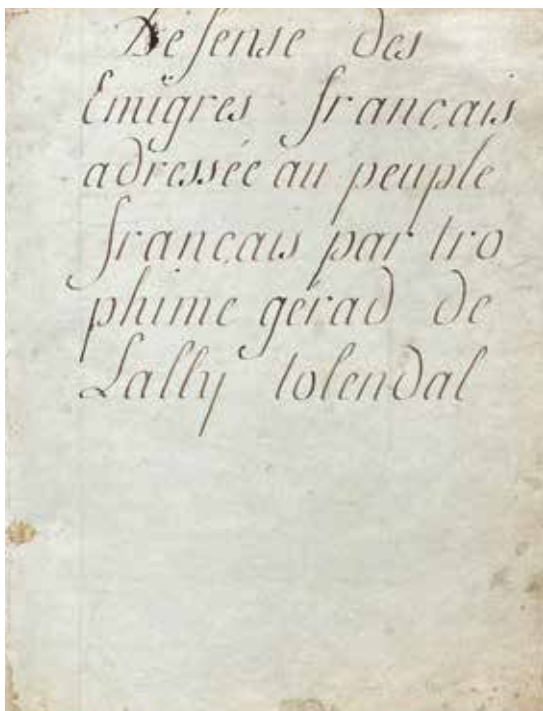 Défense des
Emigres français
adressée au peuple
français par tro
phime gérad de
Lally tolendal